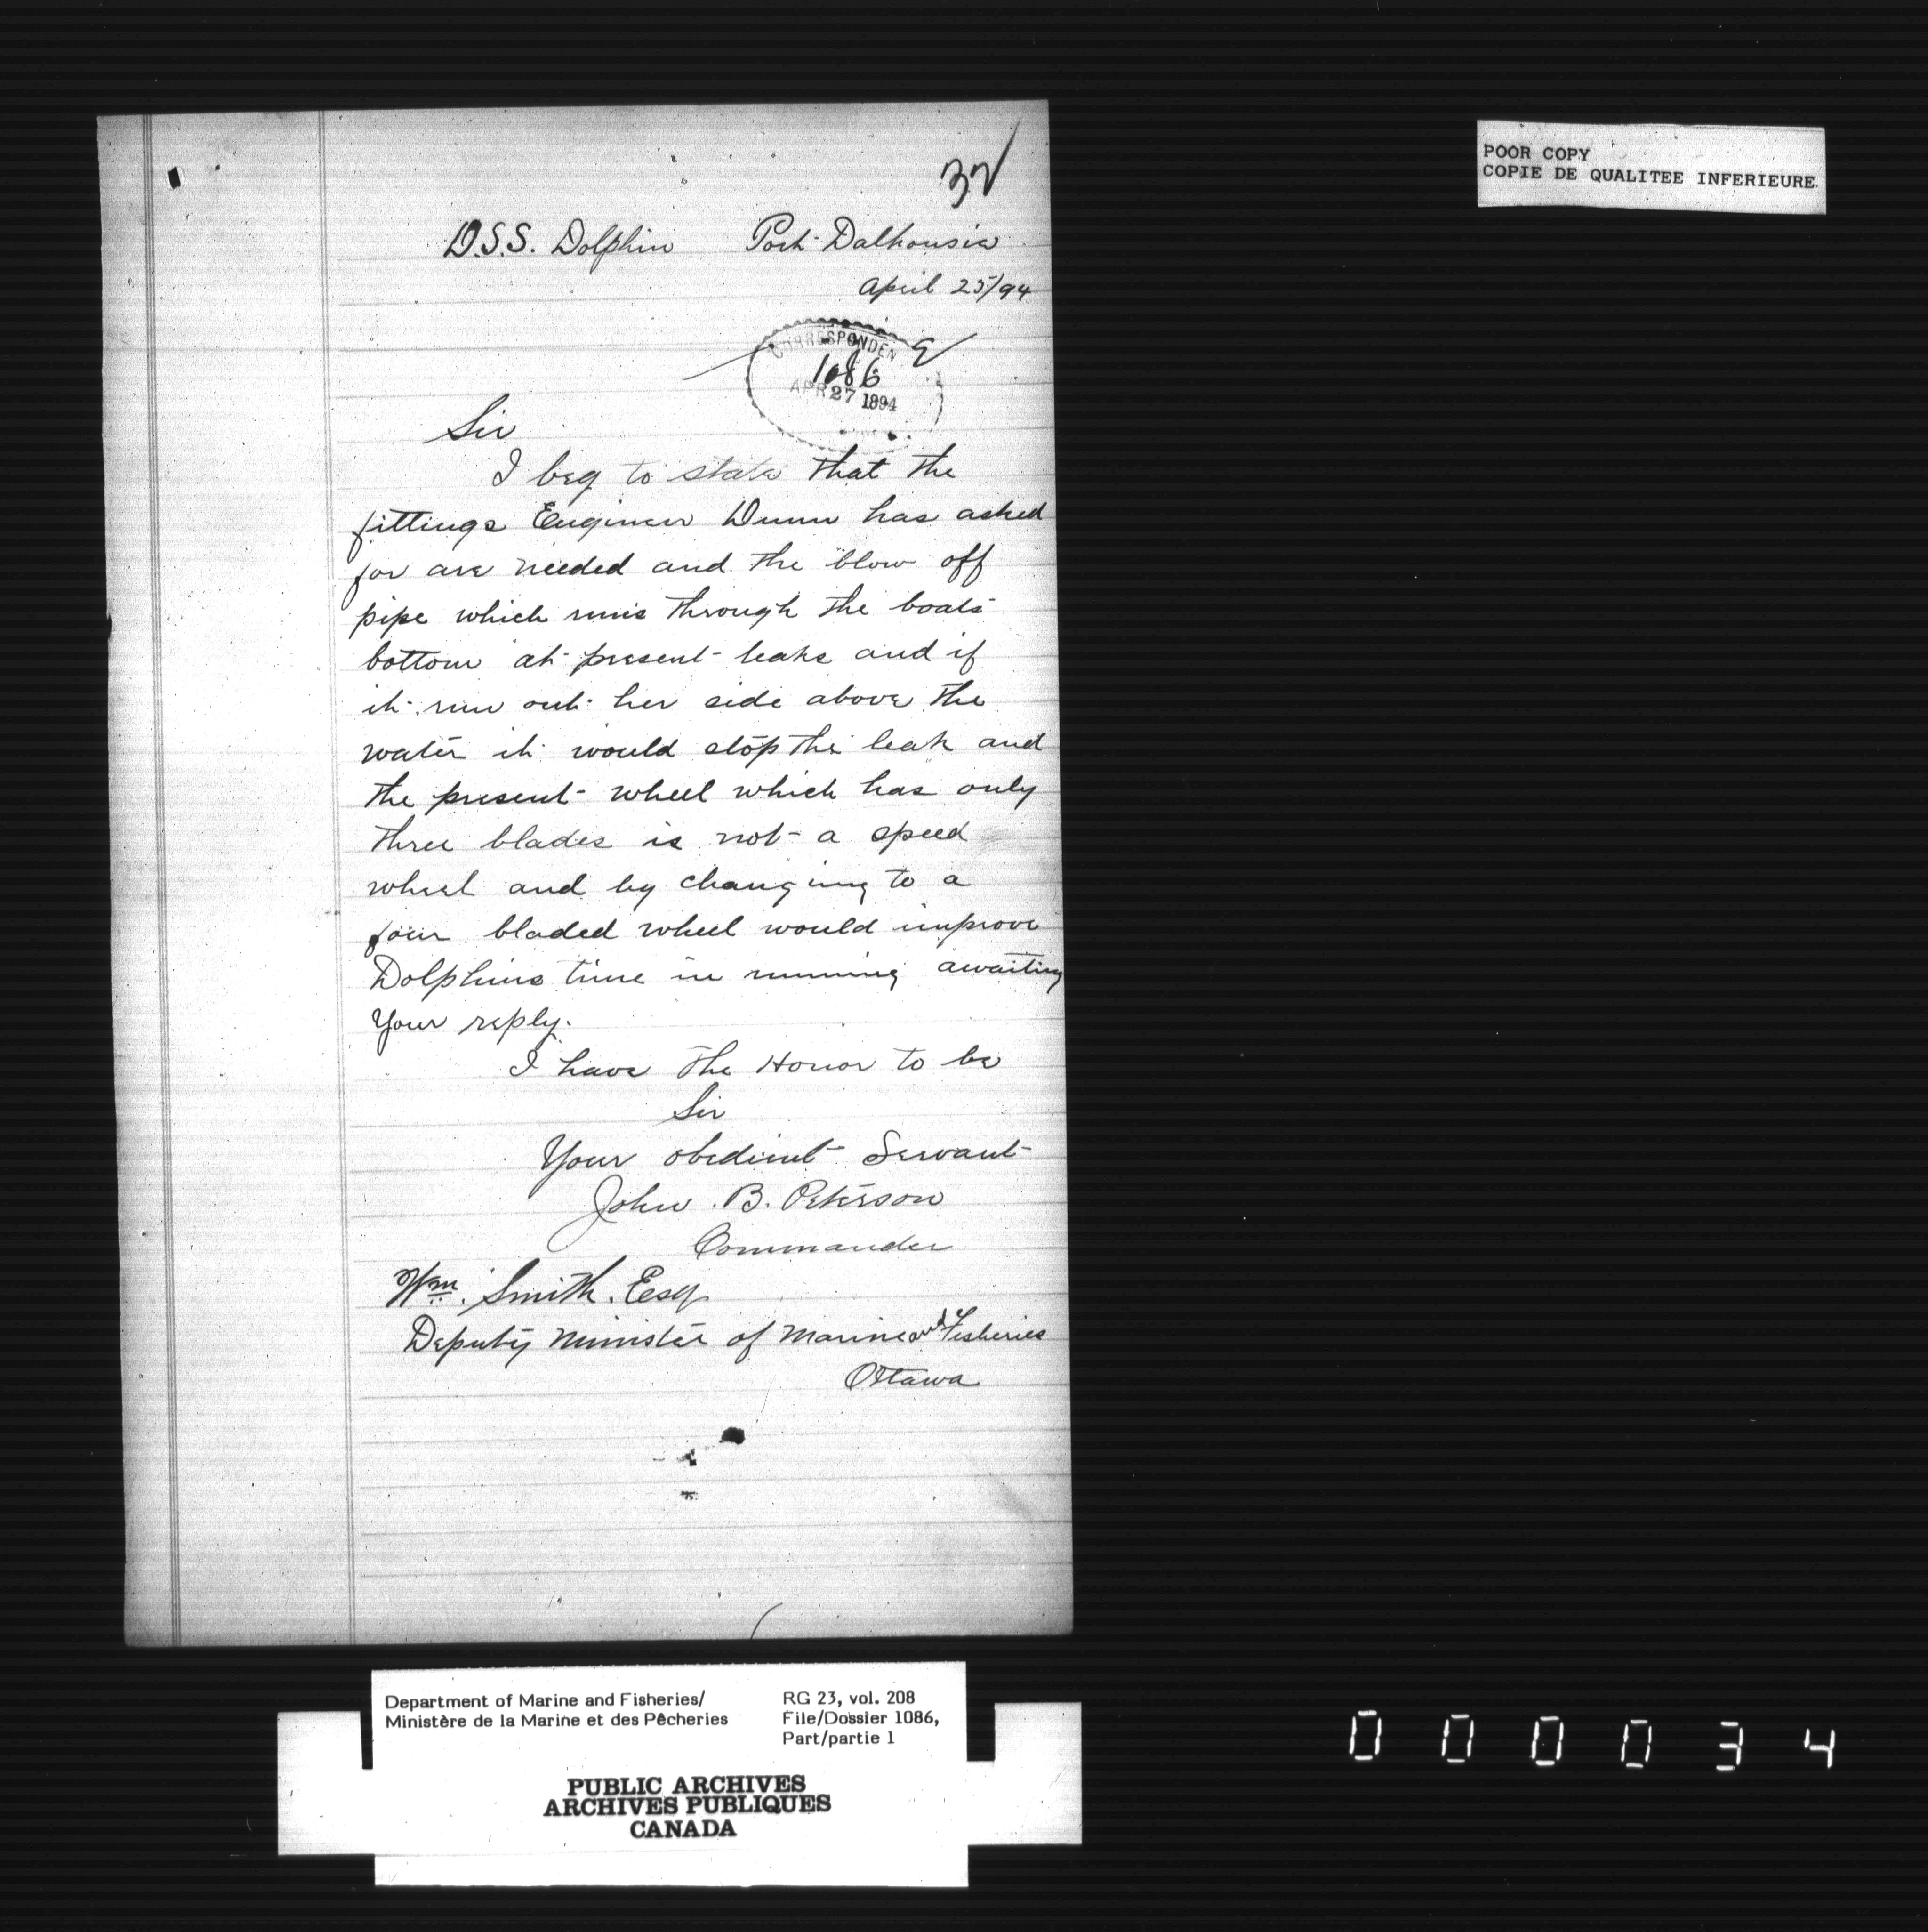 32
D.S.S. Dolphin Port Dalhousie
April 25/94
CORRESPONDEN
1086
APR 27 1894
Sir
I beg to state that the
fittings Engineer Dunn has asked
for are needed and the blow off
pipe which runs through the boats
bottom at present leaks and if
it run out her side above the
water it would stop the leak and
the present wheel which has only
three blades is not a speed
wheel and by changing to a
four bladed wheel would improve
Dolphins time in running awaiting
Your reply.
I have the Honor to be
Sir
Your obedient Servant
John B. Peterson
Commander
Wm. Smith. Esq
Deputy Minister of Marine and Fisheries
Ottawa
POOR COPY
COPIE DE QUALITEE INFERIEURE.
Department of Marine and Fisheries/
Ministère de la Marine et des Pêcheries
RG 23, vol. 208
File/Dossier 1086,
Part/partie 1
PUBLIC ARCHIVES
ARCHIVES PUBLIQUES
CANADA
000034